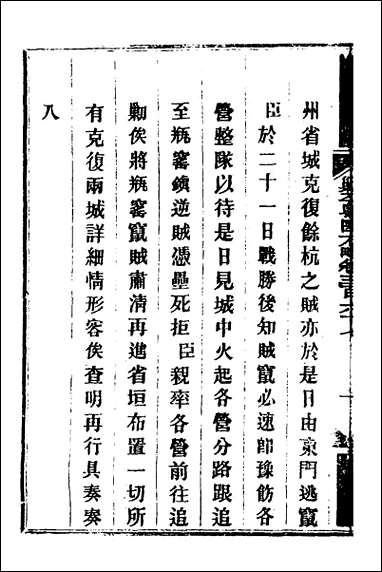 州省城克復餘杭之賊亦於是日由東門逃竄
臣於二十一日戰勝後知賊竄必速卽豫飭各
營整隊以待是日見城中火起各營分路跟追
至瓶窰鎭逆賊憑壘死拒臣親率各營前往追
勦俟將瓶窰竄賊肅清再進省垣布置一切所
有克復兩城詳細情形容俟查明再行具奏奏
入